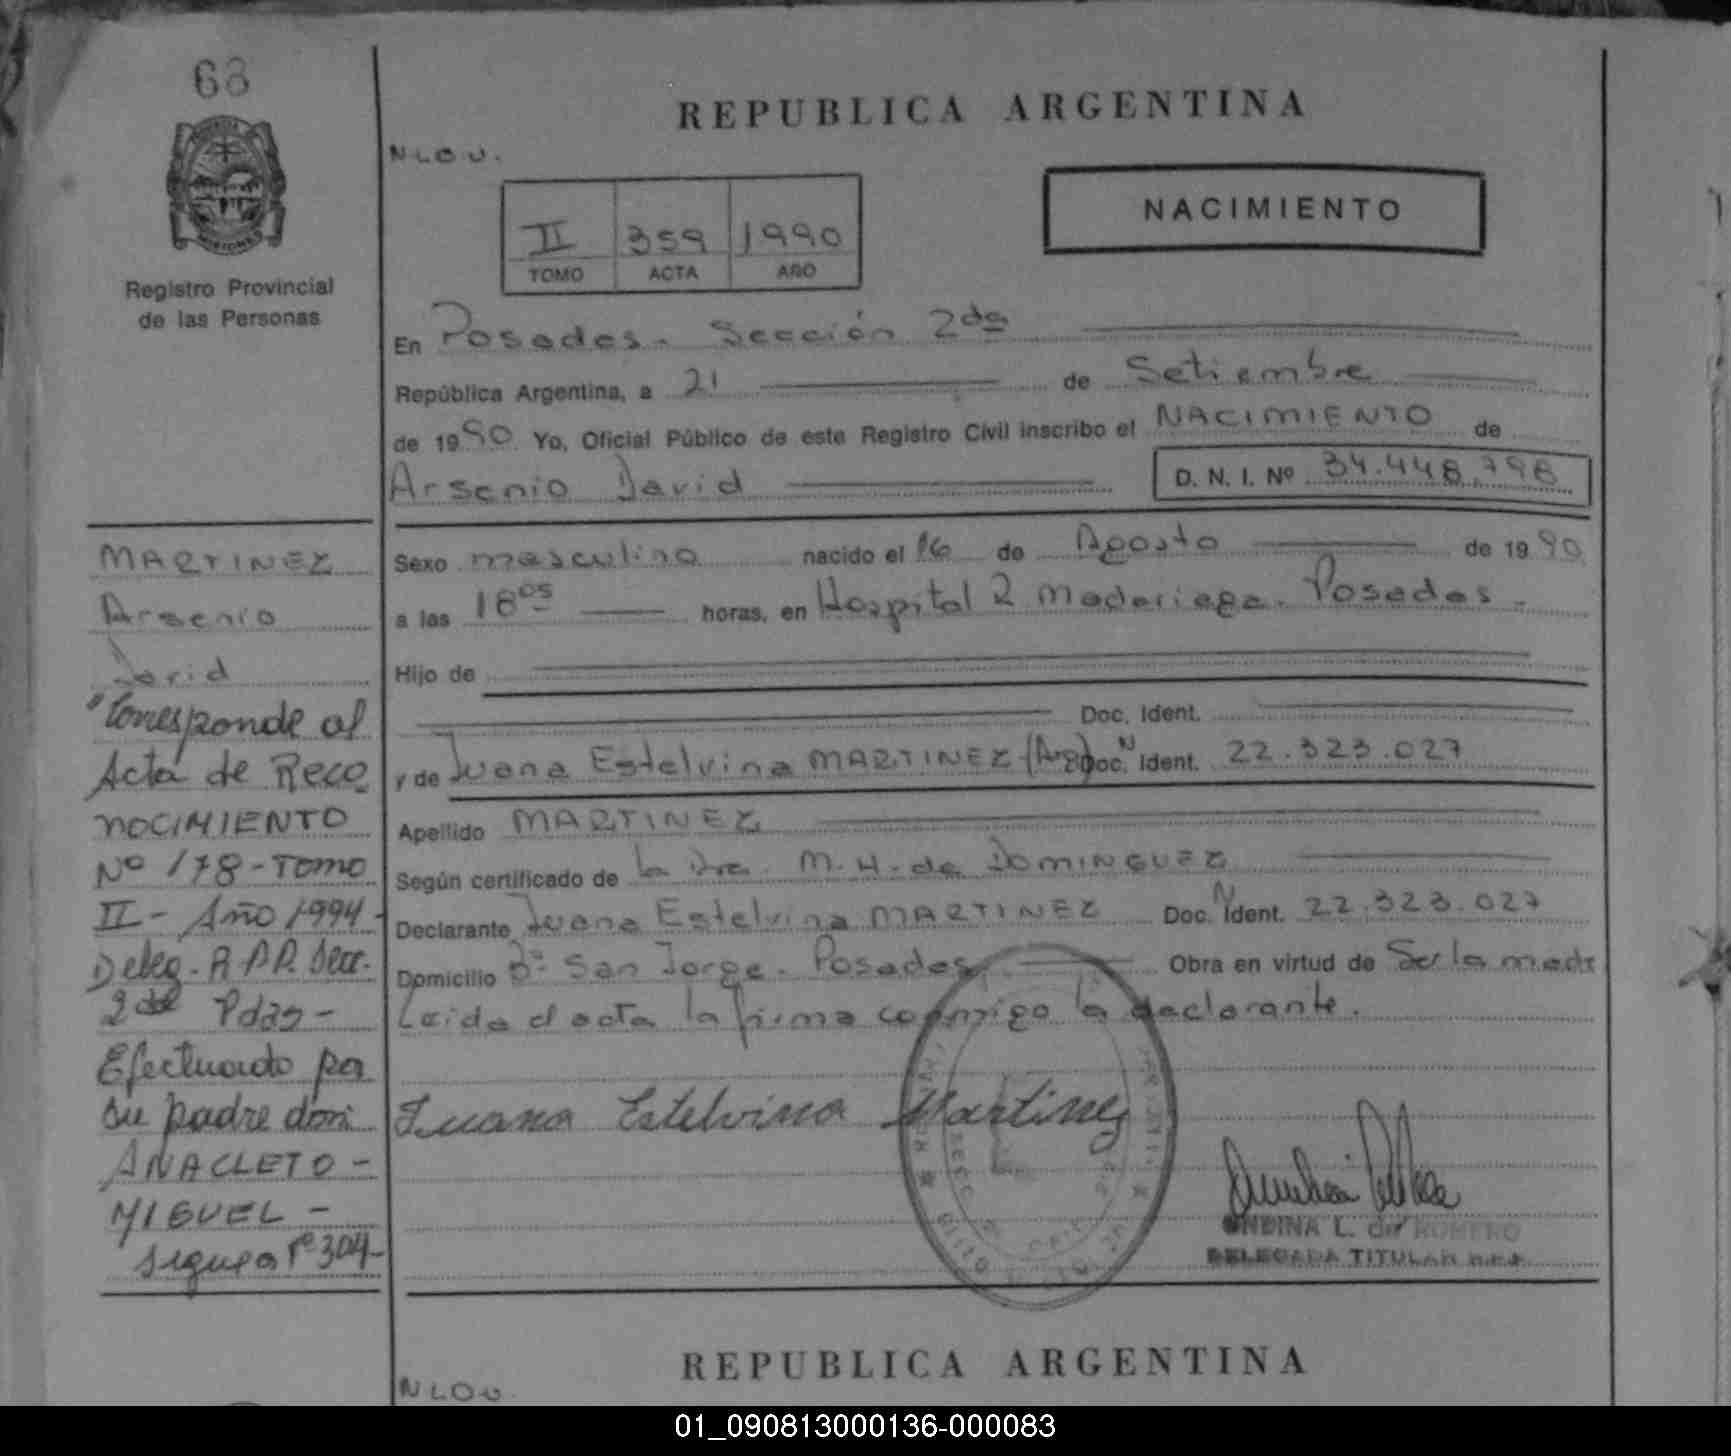 68
MISIONES
Registro Provincial
de las Personas
REPUBLICA ARGENTINA
N.L.O.U.
NACIMIENTO
II 359 1990
TOMO ACTA AÑO
En Posadas. Sección 2da
República Argentina, a 21 de Setiembre
de 1990 Yo, Oficial Público de este Registro Civil inscribo el NACIMIENTO de
Arsenio David D. N. I. Nº 34.448.798
Sexo masculino nacido el 16 de Agosto de 1990
a las 18 05 horas, en Hospital R Madariaga. Posadas.
Hijo de
Doc. Ident.
y de Juana Estelvina MARTINEZ (Arg) Doc. N Ident. 22.323.027
Apellido MARTINEZ
Según certificado de la Dra. M.H. de DOMINGUEZ
Declarante Juana Estelvina MARTINEZ Doc. N Ident. 22.323.027
Domicilio Bº San Jorge. Posadas. Obra en virtud de Ser la madr
Leida el acta la firma conmigo la declarante.
Juana Estelvina Martinez
ONDINA L. de ROMERO
DELEGADA TITULAR R.P.P.
MARTINEZ
Arsenio
David
"Corresponde al
Acta de Reco
NOCIMIENTO
Nº 178 - Tomo
II - Año 1994 -
Deleg. R.P.P. Secc.
2da Pdas -
Efectuado por
su padre don
ANACLETO -
MIGUEL -
sigue a Fº 304 -
REPUBLICA ARGENTINA
N L O U.
01_090813000136-000083